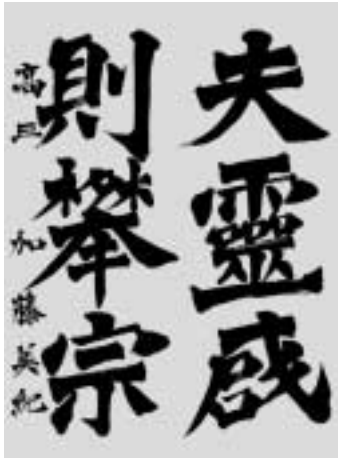 夫靈感
則攀宗
高三 加藤美紀